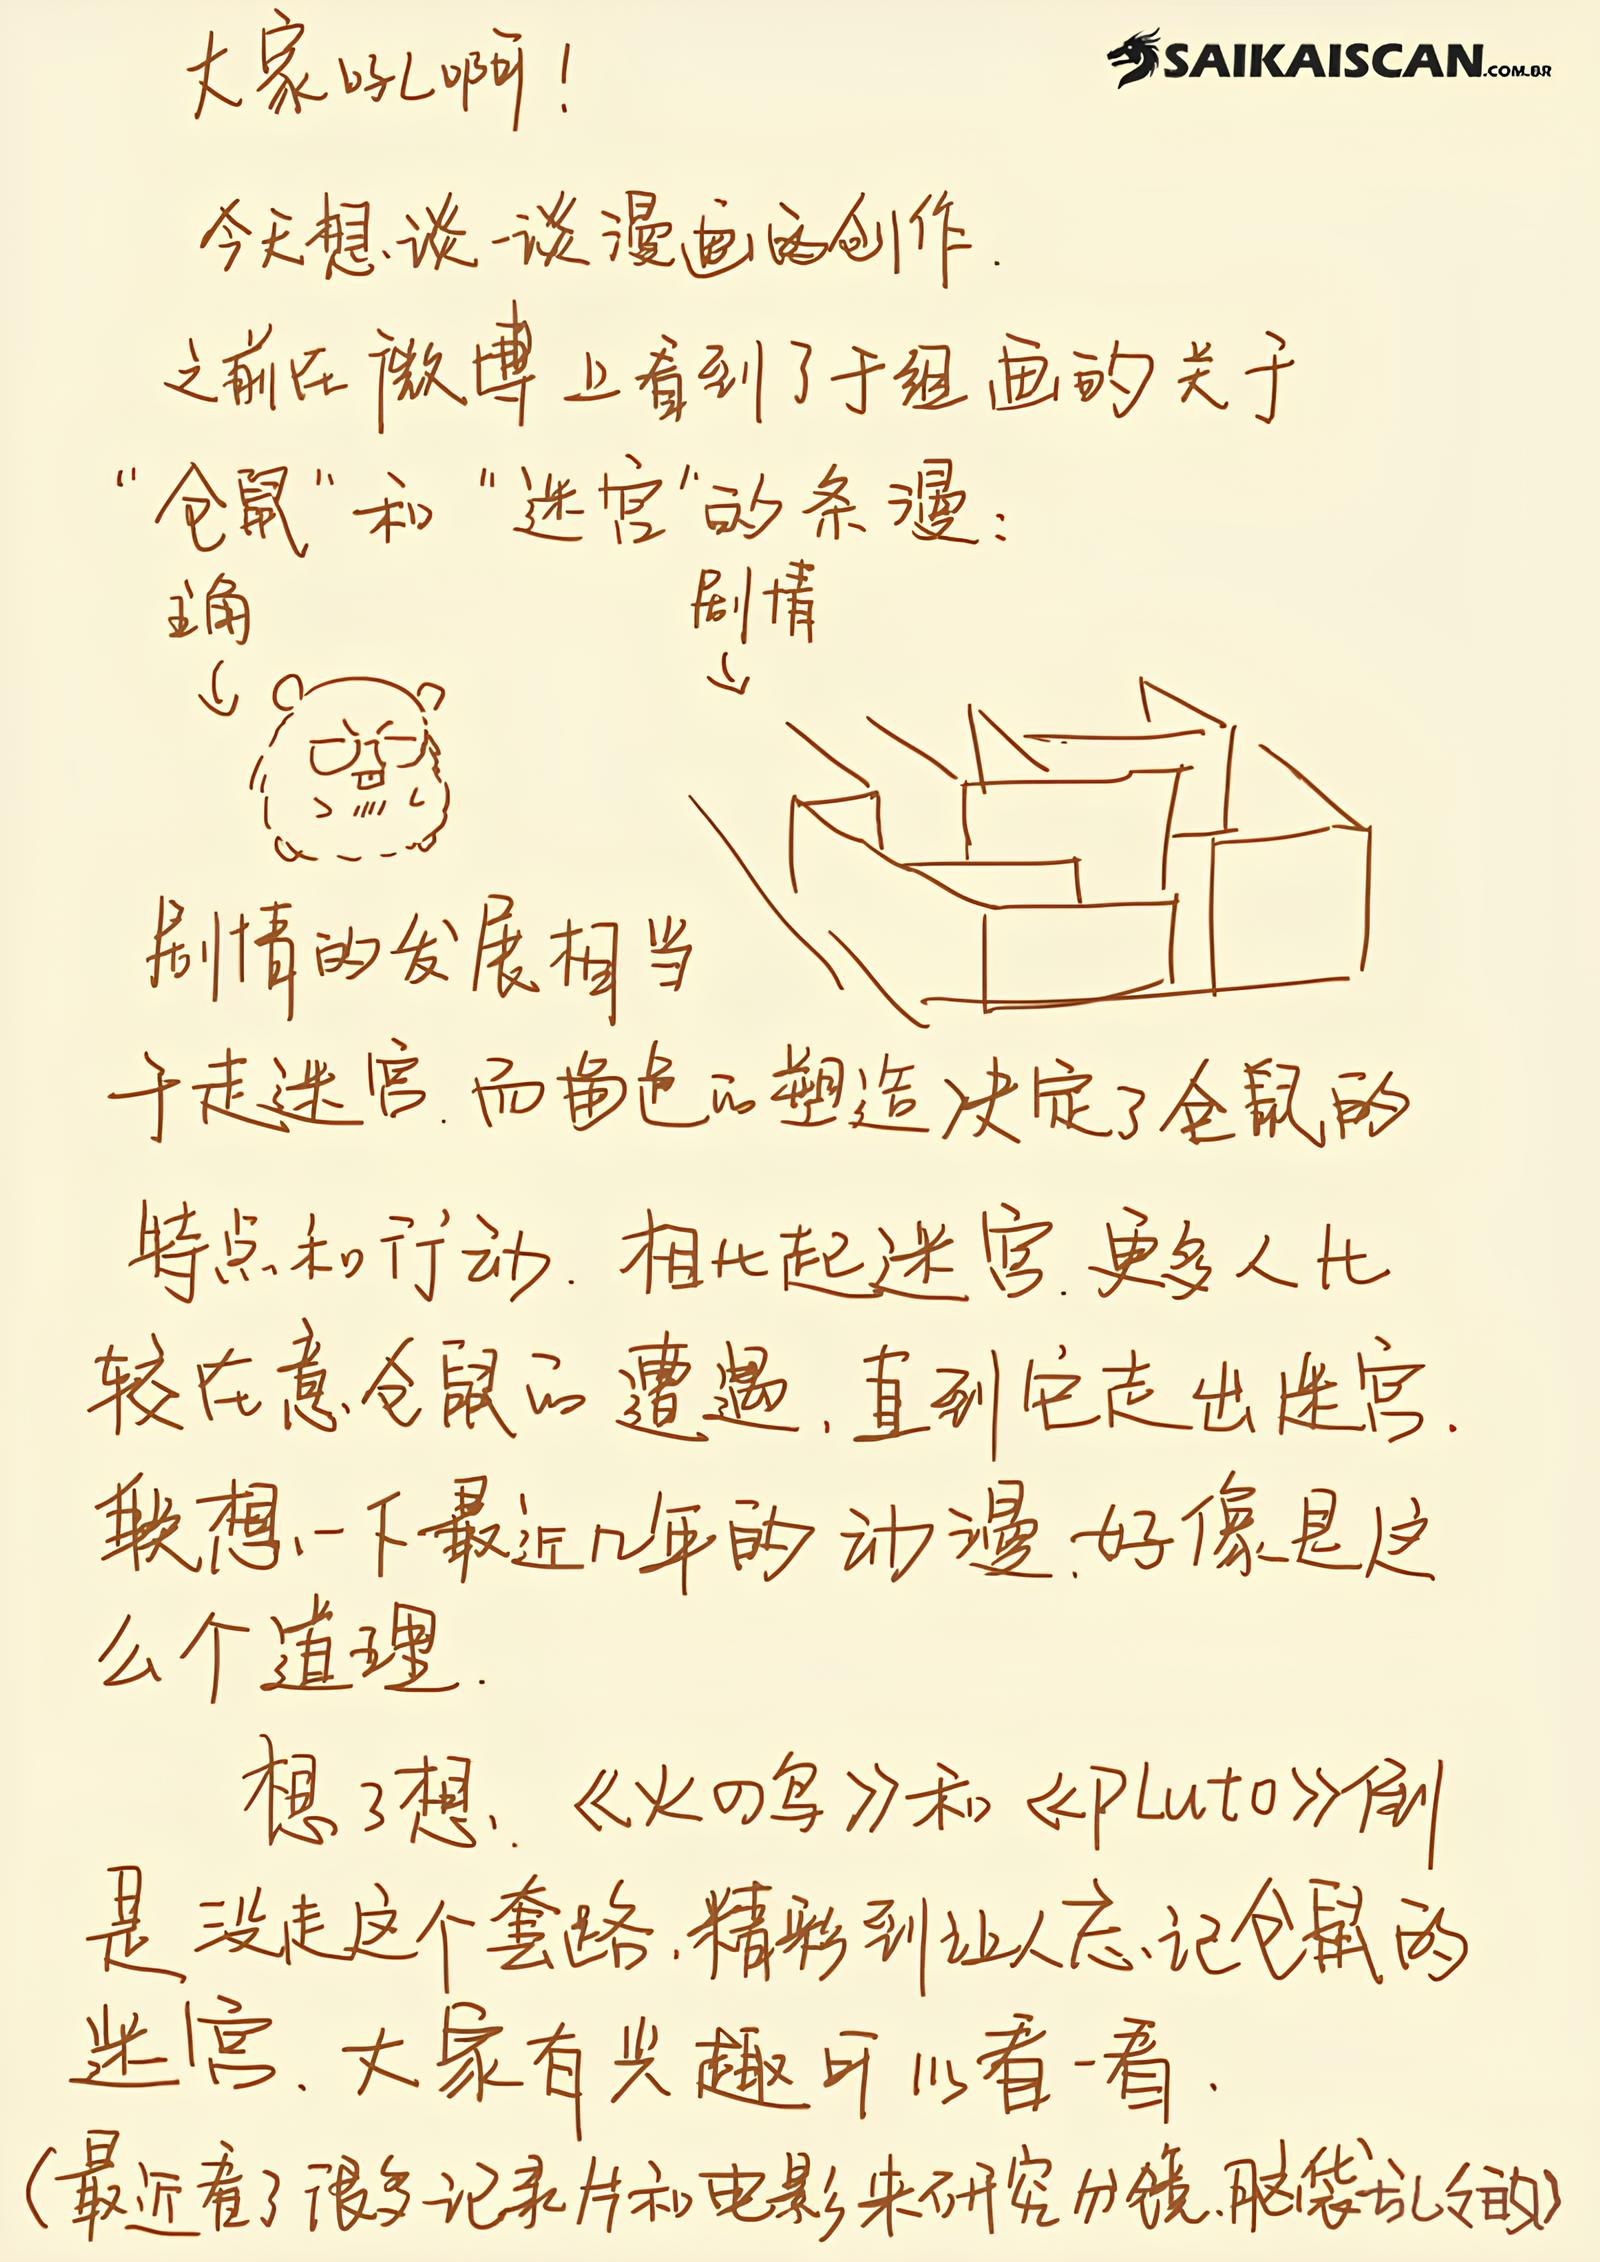 SAIKAISCAN.COM.BR
大家好啊！
今天想谈一谈漫画的创作.
之前在微博上看到了于组画的关于
“仓鼠”和“迷宫”的条漫：
主角
剧情
剧情的发展相当
于走迷宫.而角色的塑造决定了仓鼠的
特点和行动.相比起迷宫.更多人比
较在意仓鼠的遭遇,直到它走出迷宫.
联想一下最近几年的动漫,好像是这
么个道理.
想了想,《火の鸟》和《PLuto》倒
是没走这个套路,精彩到让人忘记仓鼠的
迷宫.大家有兴趣可以看一看.
(最近看了很多记录片和电影来研究分镜,脑袋乱乱的)